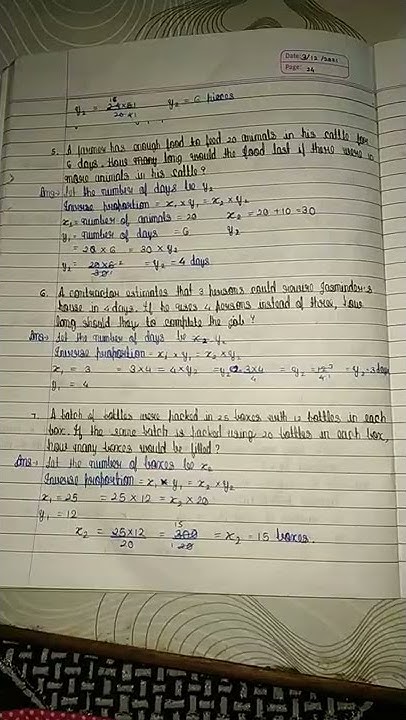 Date: 3/12/2021
Page: 24
y₂ = 24×5 / 20 y₂ = 6 pieces
5. A farmer has enough food to feed 20 animals in his cattle for
6 days. How many long would the food last if there were 10
more animals in his cattle?
Ans→ Let the number of days be y₂
Inverse proportion = x₁ × y₁ = x₂ × y₂
x₁ = number of animals = 20 x₂ = 20 + 10 = 30
y₁ = number of days = 6 y₂
= 20 × 6 = 30 × y₂
y₂ = 20×6 / 30 = y₂ = 4 days
6. A contractor estimates that 3 persons could rewire Jasminder's
house in 4 days. If he uses 4 persons instead of three, how
long should they to complete the job?
Ans→ Let the number of days be x₂ y₂
Inverse proportion = x₁ × y₁ = x₂ × y₂
x₁ = 3 = 3×4 = 4×y₂ = y₂ = 3×4 / 4 = y₂ = 12 3 / 4 1 = y₂ = 3 days
y₁ = 4
7. A batch of bottles were packed in 25 boxes with 12 bottles in each
box. If the same batch is packed using 20 bottles in each box,
how many boxes would be filled?
Ans→ Let the number of boxes be x₂
Inverse proportion = x₁ × y₁ = x₂ × y₂
x₁ = 25 = 25 × 12 = x₂ × 20
y₁ = 12
x₂ = 25×12 / 20 = 15 300 / 1 20 = x₂ = 15 boxes.